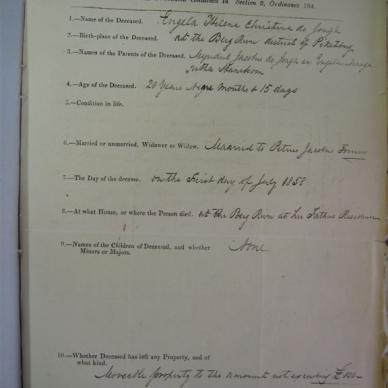 Section 9, Ordinance 104.
1.—Name of the Deceased. Engela Helena Christina de Jongh
2.—Birth-place of the Deceased. at the Berg River district of Piketberg
3.—Names of the Parents of the Deceased. Myndert Jacobus de Jongh en Engela
4.—Age of the Deceased. 20 Years months & 15 days
5.—Condition in life.
6.—Married or unmarried, Widower or Widow. Married to Petrus Jacobus
7.—The Day of the decease. on the First day of July 1858
8.—At what House, or where the Person died. at the Berg River at her Fathers
9.—Names of the Children of Deceased, and whether None
Minors or Majors.
10.—Whether Deceased has left any Property, and of
what kind.
Moveable property to the amount not exceeding £